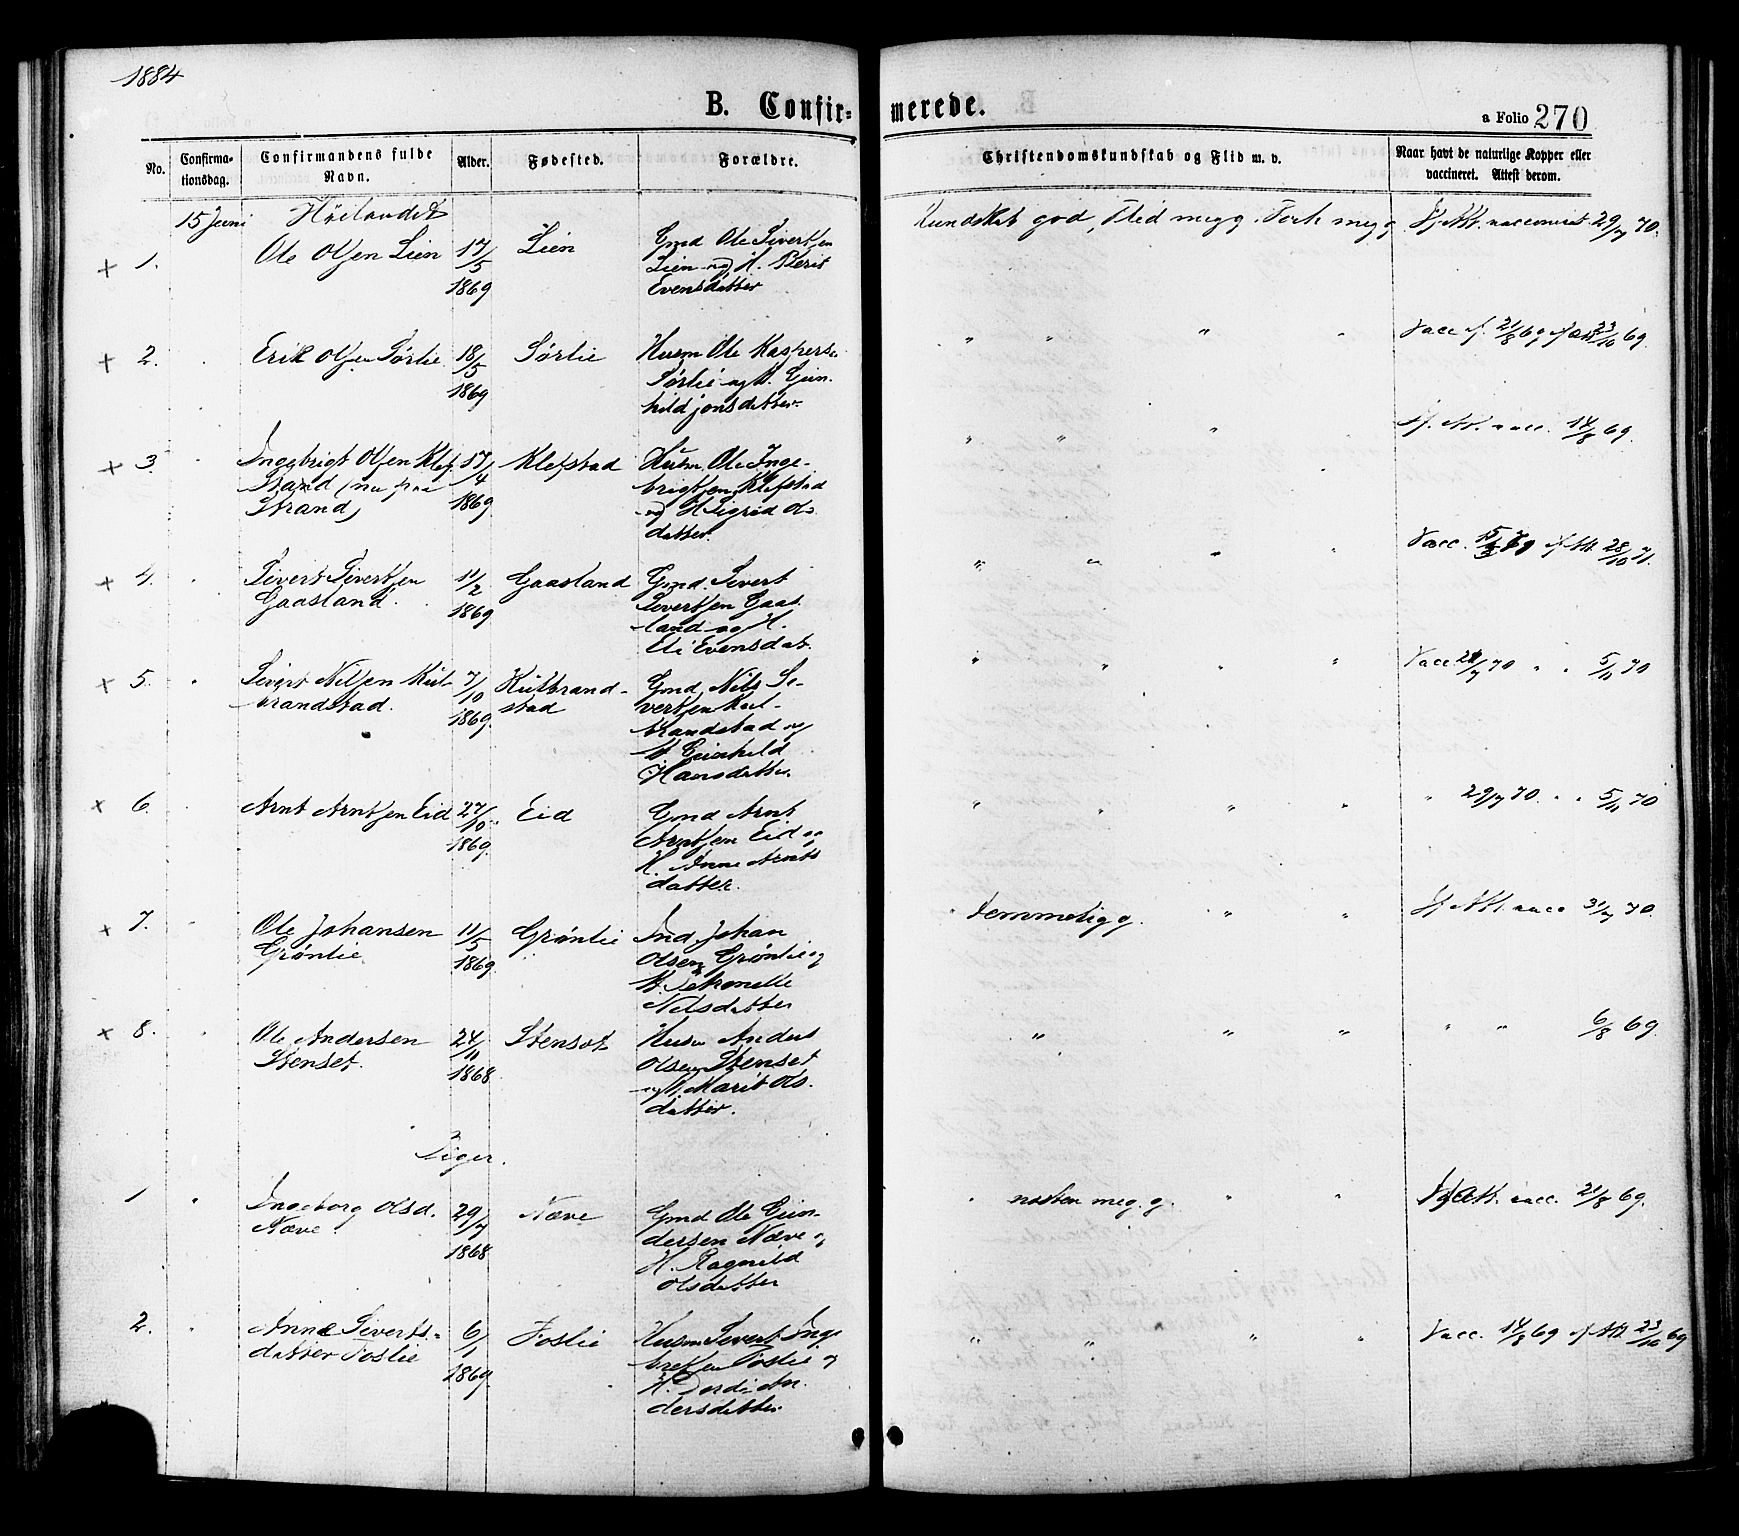 1884
B. Confir-merede.
a Folio 270
No.
Confirma-
tionsdag.
Confirmandens fulde
Navn.
Alder.
Fødested.
Forældre.
Christendomskundskab og Flid m. v.
Naar havt de naturlige Kopper eller
vaccineret. Attest derom.
15 Juni Høilandet
Kundskab god, Flid meg g. Forh meg g
Ifl. Att. vaccineret 29/7 70.
x 1. Ole Olsen Lien 17/5 1869 Lien
Gmd Ole Sivertsen
Lien og H. Berit
Evensdatter
x 2. Erik Olsen Sørlie 18/5 1869 Sørlie
Husm Ole Kaspers.
Sørlie og H. Gun-
hild Jonsdatter
" " " "
Vacc d. 21/8 69 If Att 23/10 69.
x 3. " Ingebrigt Olsen Klef
stad (nu paa
Strand)
17/4 1869 Klefstad
Husm. Ole Inge-
brigtsen Klefstad
og H Sigrid Ols
datter.
" " " "
If. Att. vacc. 14/8 69.
x 4. " Sivert Sivertsen
Gaasland.
11/2 1869 Gaasland
Gmd. Sivert
Sivertsen Gaas
land og H.
Eli Evensdat.
" " " "
Vacc. If Att 28/10 71.
x 5. " Sivert Nilsen Kul-
brandstad.
7/10 1869. Kulbrand-
stad
Gmd Nils Si-
vertsen Kul-
brandstad og
H Gunhild
Hansdatter
" " " "
Vacc 28/7 70 " " 5/11 70
x 6. " Arnt Arntsen Eid 27/10 1869. Eid
Gmd Arnt
Arntsen Eid og
H. Anne Arnts
datter.
" " " "
" 29/7 70. " " 5/11 70
x 7. " Ole Johansen
Grønlie
11/5 1869 Grønlie
Ind. Johan
Olsen Grønlie og
H.
Nilsdatter
" temmelig g. " "
If Att. vacc 31/7 70.
x 8. " Ole Andersen
Stenset.
24/11 1868. Stenset
Husm Anders
Olsen Stenset
og H. Marit Ols.
datter.
" " "
" " 6/8 69.
Piger.
1 " Ingeborg Olsd.
Næve.
29/7 1868 Næve
Gmd Ole Gun-
dersen Næve og
H. Ragnild
Olsdatter
" næsten meg. g. " "
If Att. vacc. 21/8 69.
2. " Anne Siverts-
datter Foslie
6/1 1869. Foslie
Husm Sivert Inge
bretsen Foslie og
H. Dordi An.
dersdatter
" " " "
Vacc. 14/8 69 If Att 23/10 69